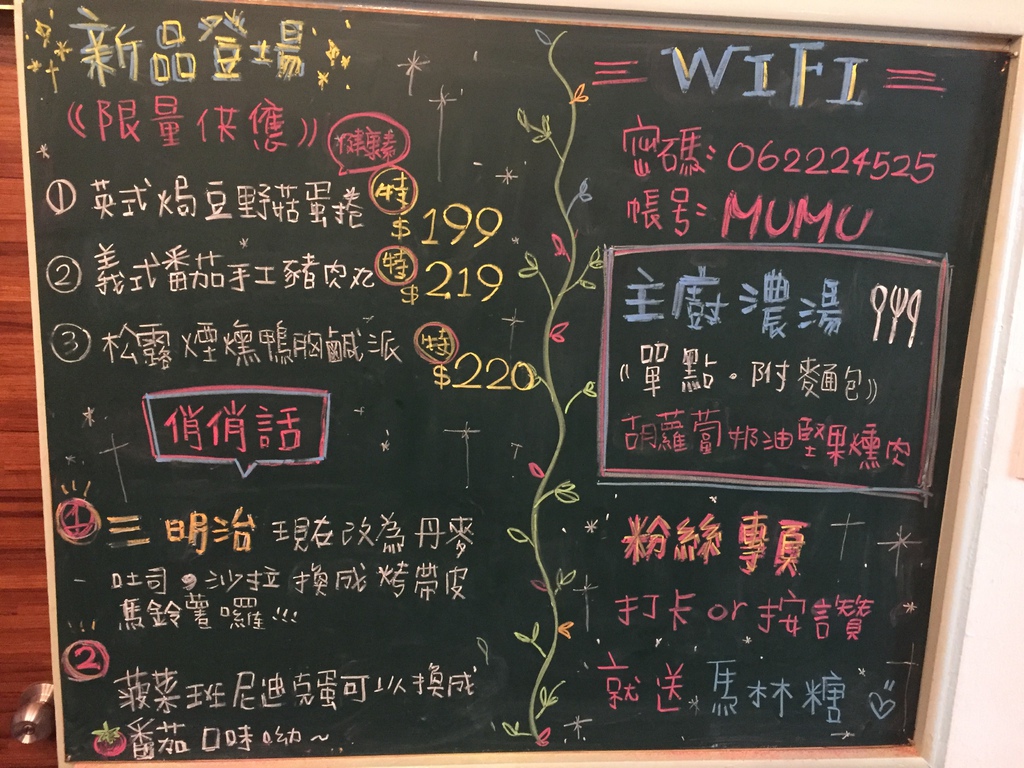 新品登場
《限量供應》
健康素
① 英式焗豆野菇蛋捲 特 $199
② 義式番茄手工豬肉丸 特 $219
③ 松露煙燻鴨胸鹹派 特 $220
俏俏話
1 三明治 現在改為丹麥
吐司。沙拉換成烤帶皮
馬鈴薯囉!!!
2
菠菜班尼迪克蛋可以換成
番茄口味呦~
WIFI
密碼: 062224525
帳号: MUMU
主廚濃湯
《單點。附麵包》
胡蘿蔔奶油堅果燻肉
粉絲專頁
打卡or按讚
就送馬林糖